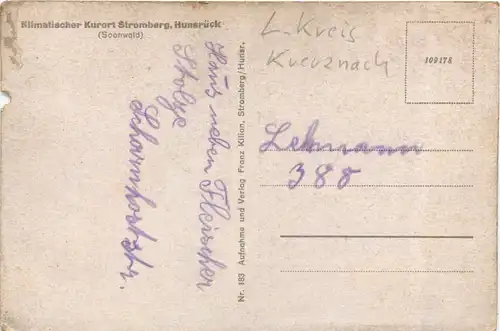 Klimatischer Kurort Stromberg, Hunsrück
(Soonwald)
Haus neben Fleischer
Stolze
Scharnhorststr.
Nr. 183 Aufnahme und Verlag Franz Kilian, Stromberg/Hunsr.
L. Kreis
Kreuznach
109178
Lehmann
388